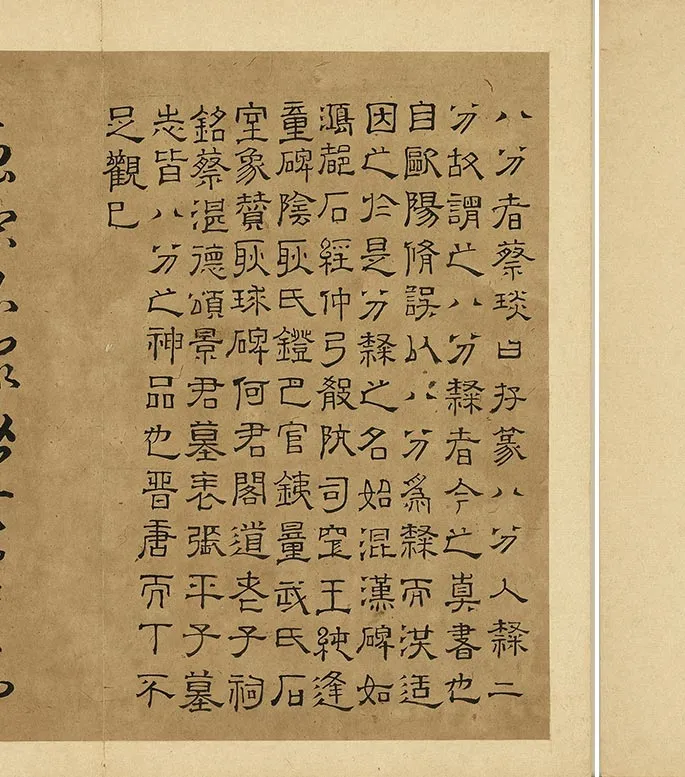 八分者蔡琰曰存篆八分入隸二
分故謂之八分隸者今之真書也
自歐陽脩誤以八分爲隸而洪适
因之於是分隸之名始混漢碑如
鴻都石經仲弓殽阬司空王純逢
童碑陰耿氏鐙巴官銕量武氏石
室象贊耿球碑何君閣道老子祠
銘蔡湛德頌景君墓表張平子墓
志皆八分之神品也晉唐而下不
足觀已